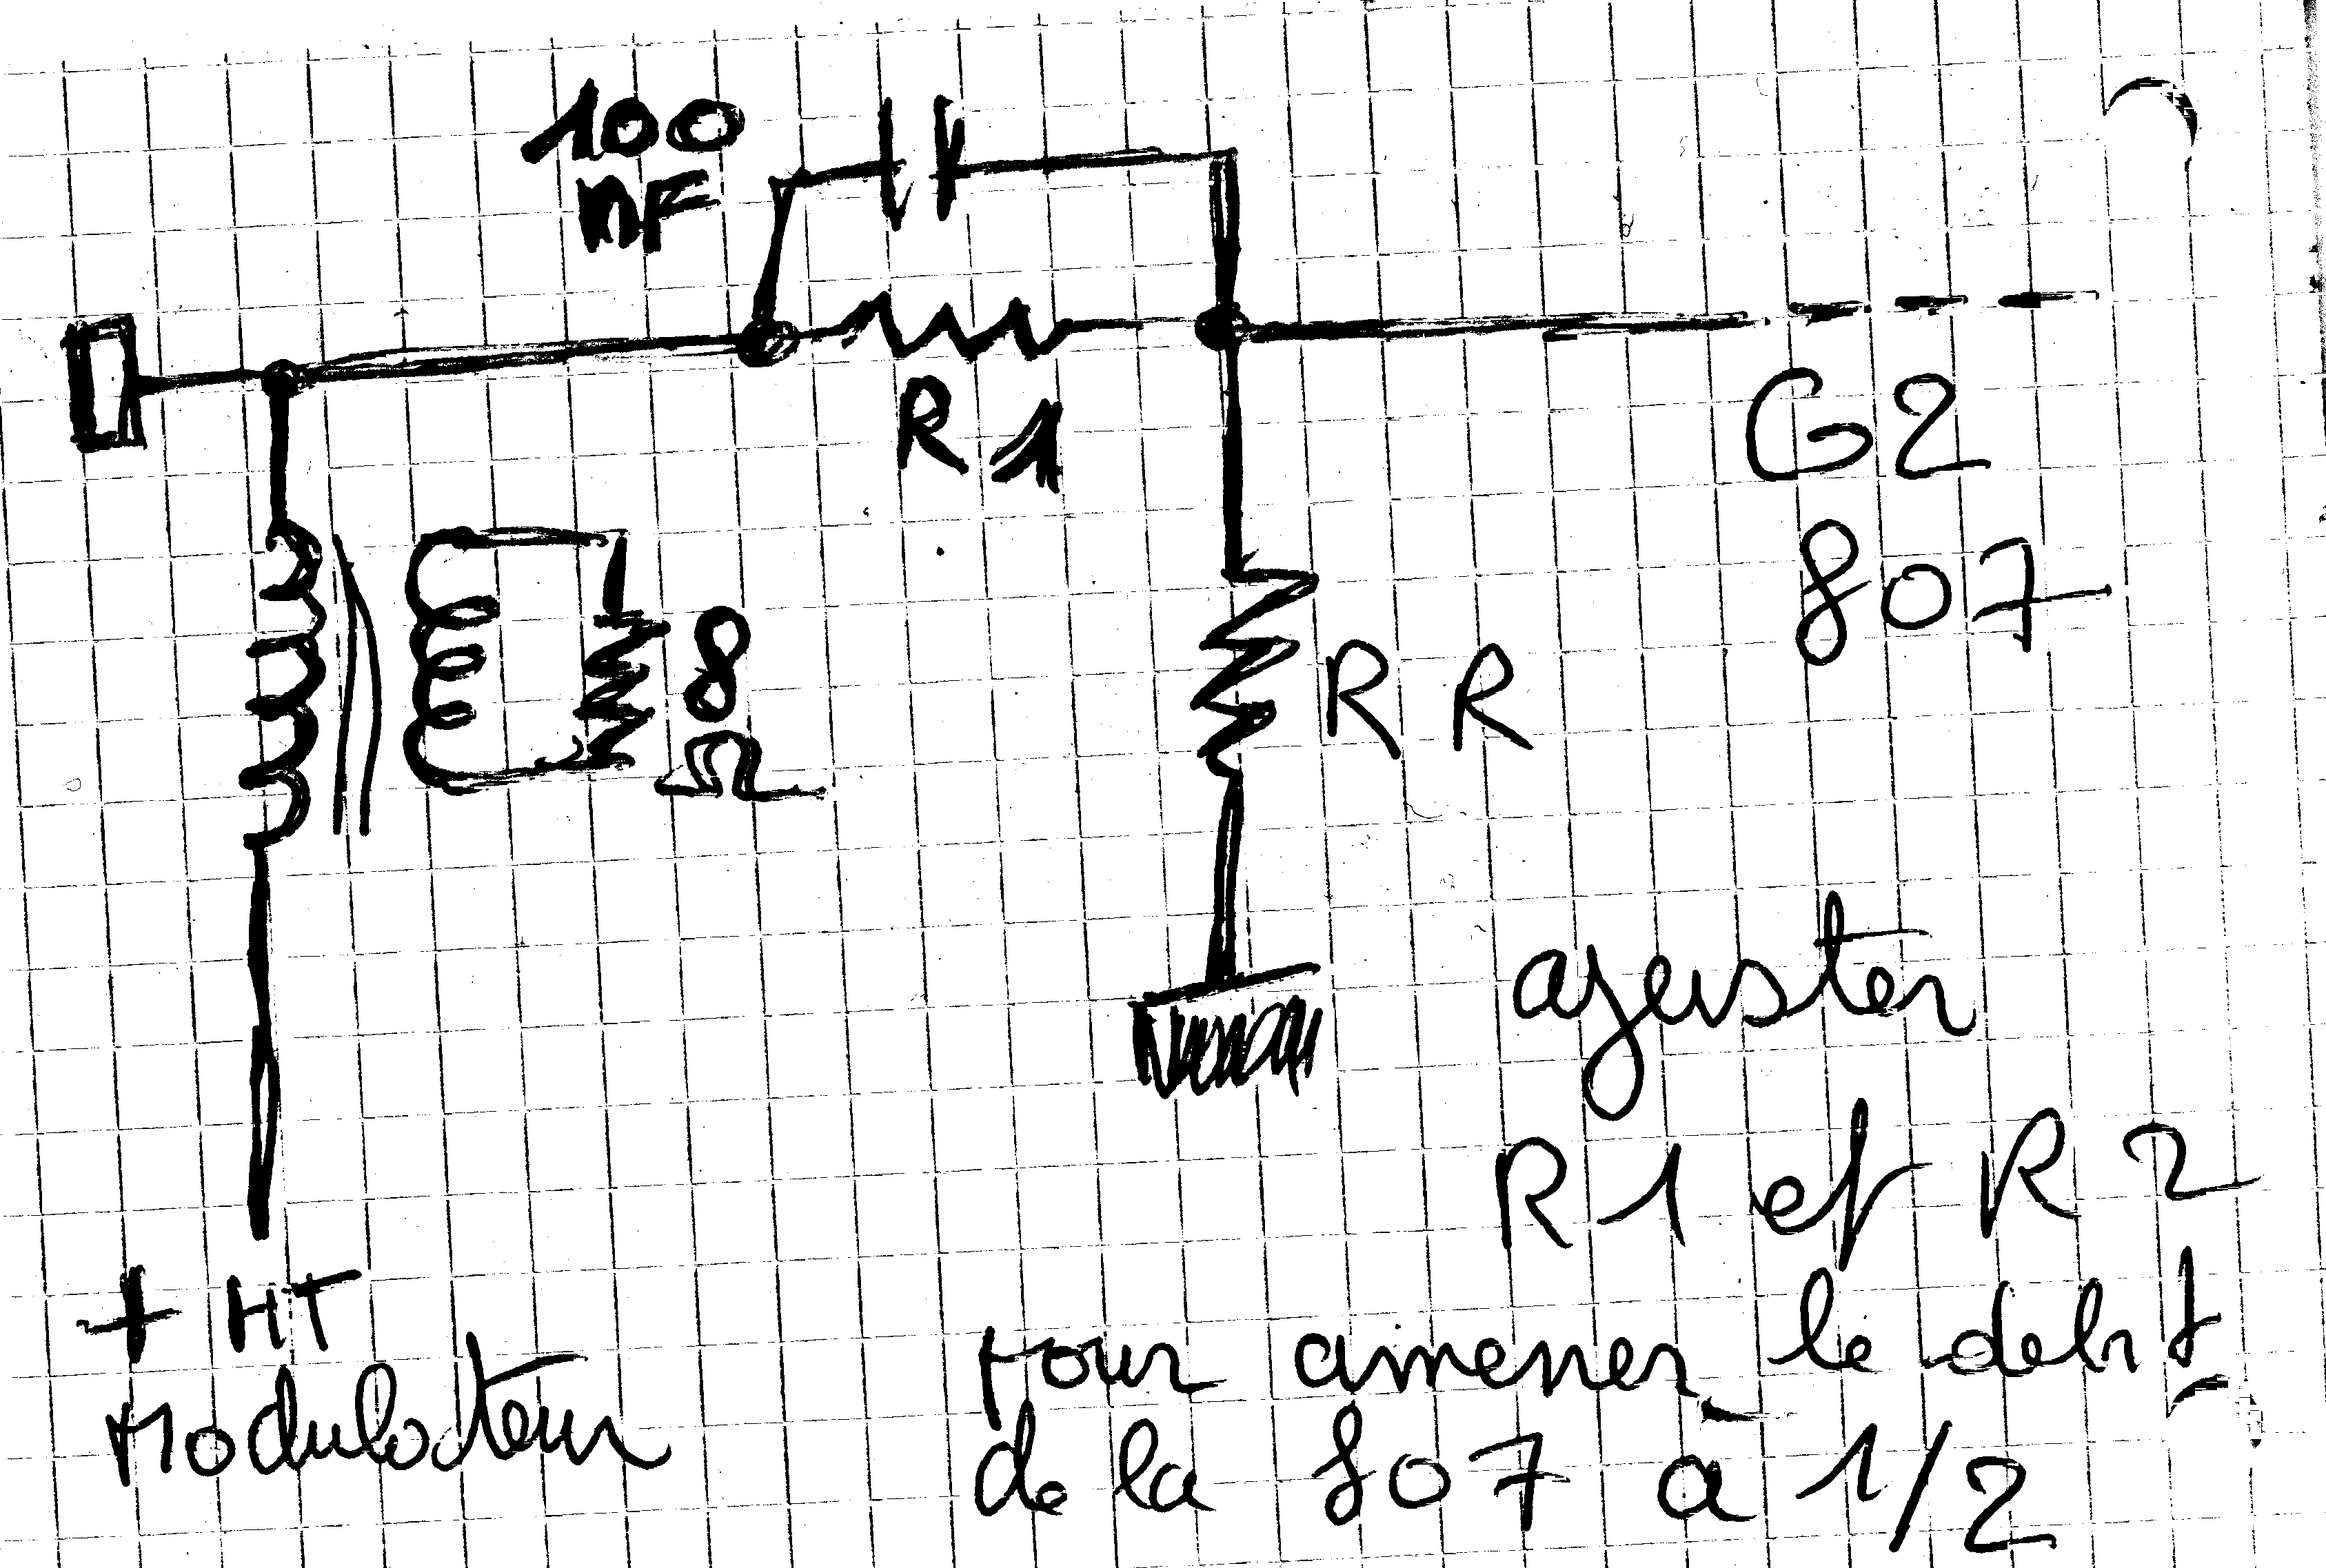 100
nF
R1
G2
807
8
Ω
R R
ajuster
R1 et R2
+ HT
Modulateur
pour amener le debit
de la 807 à 1/2